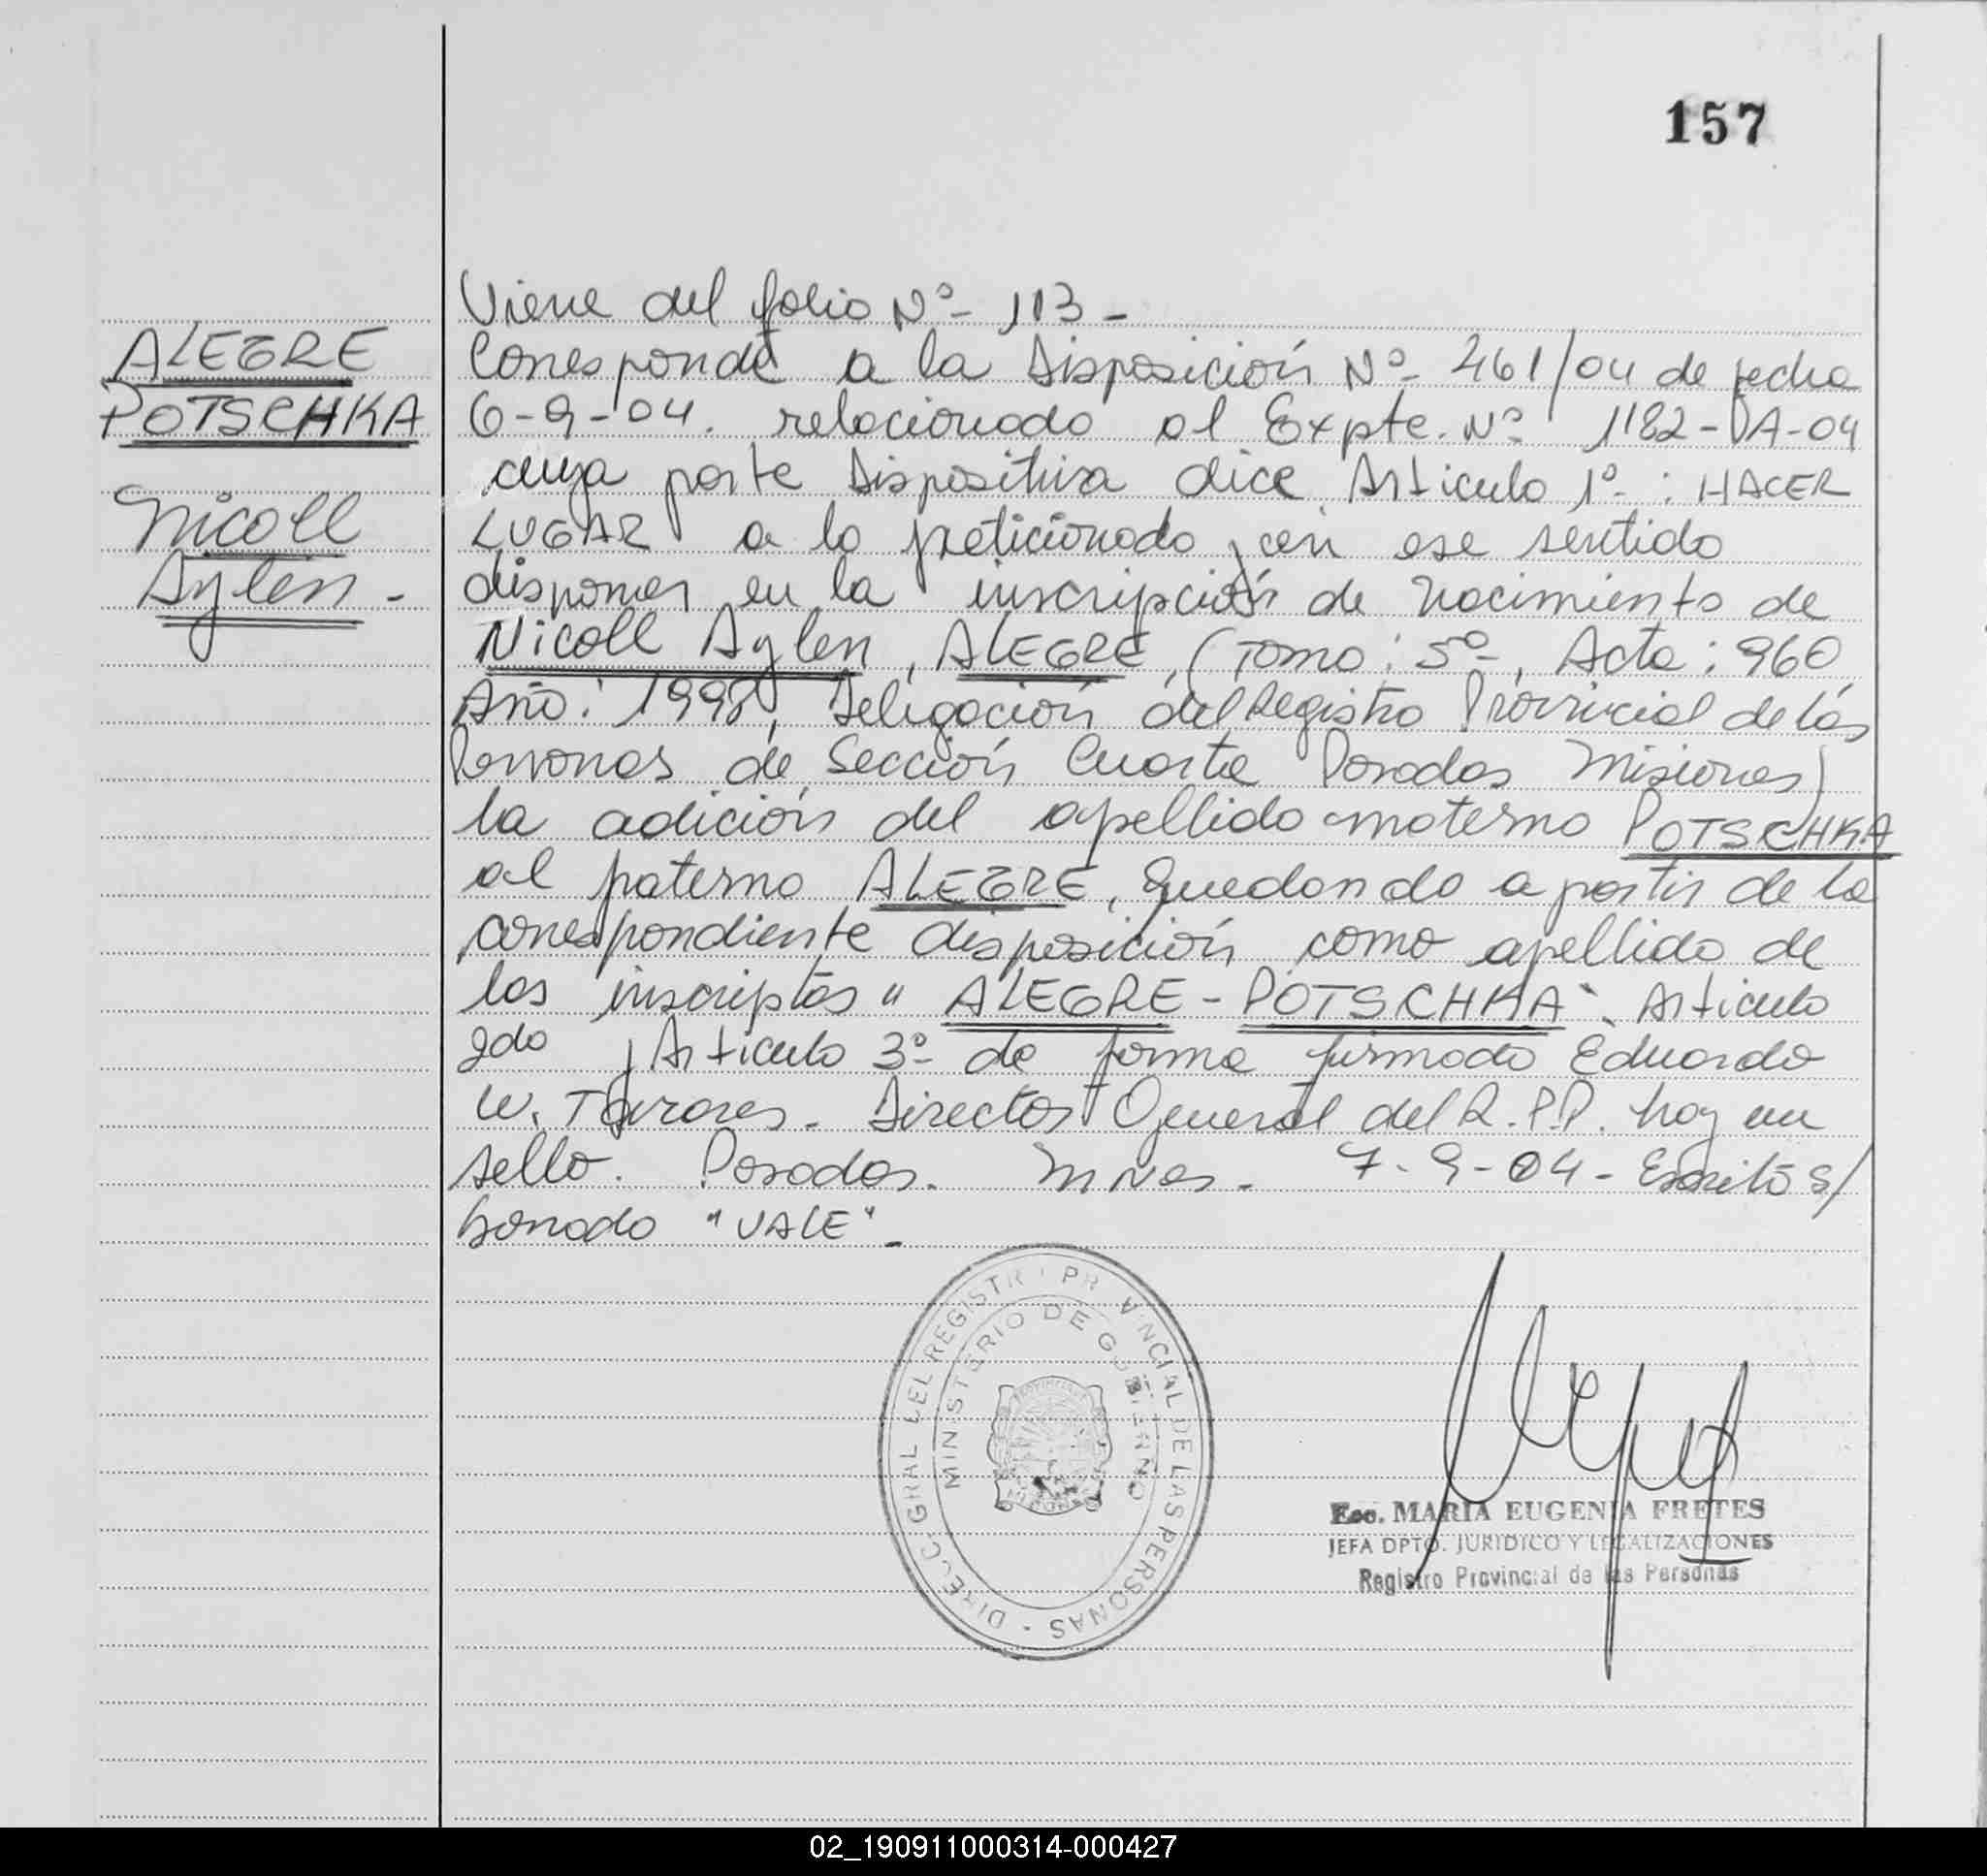 157
Viene del folio Nº 113 -
ALEGRE
POTSCHKA
Nicoll
Aylen -
Corresponde a la Disposición Nº 461/04 de fecha
6-9-04. relacionado al Expte. Nº 1182-DA-04
cuya parte Dispositiva dice Articulo 1º : HACER
LUGAR a lo peticionado y en ese sentido
disponer en la inscripción de nacimiento de
Nicoll Aylen, ALEGRE, (Tomo: 5º, Acta: 960
Año: 1998, Delegación del Registro Provincial de las
Personas de Sección Cuarta Posadas Misiones)
la adición del apellido materno POTSCHKA
al paterno ALEGRE, Quedando a partir de la
correspondiente disposición como apellido de
los inscriptos " ALEGRE - POTSCHKA". Articulo
2do y Articulo 3º de forma firmado Eduardo
W. Tavares. Director General del R.P.P. hay un
sello. Posadas. Mnes. 7-9-04 - Escrito s/
borrado "VALE" -
DIRECC. GRAL DEL REGISTR PR VINCIAL DE LAS PERSONAS -
MINISTERIO DE GOBIERNO
Esc. MARIA EUGENIA FRETES
JEFA DPTO. JURIDICO Y LEGALIZACIONES
Registro Provincial de las Personas
02_190911000314-000427